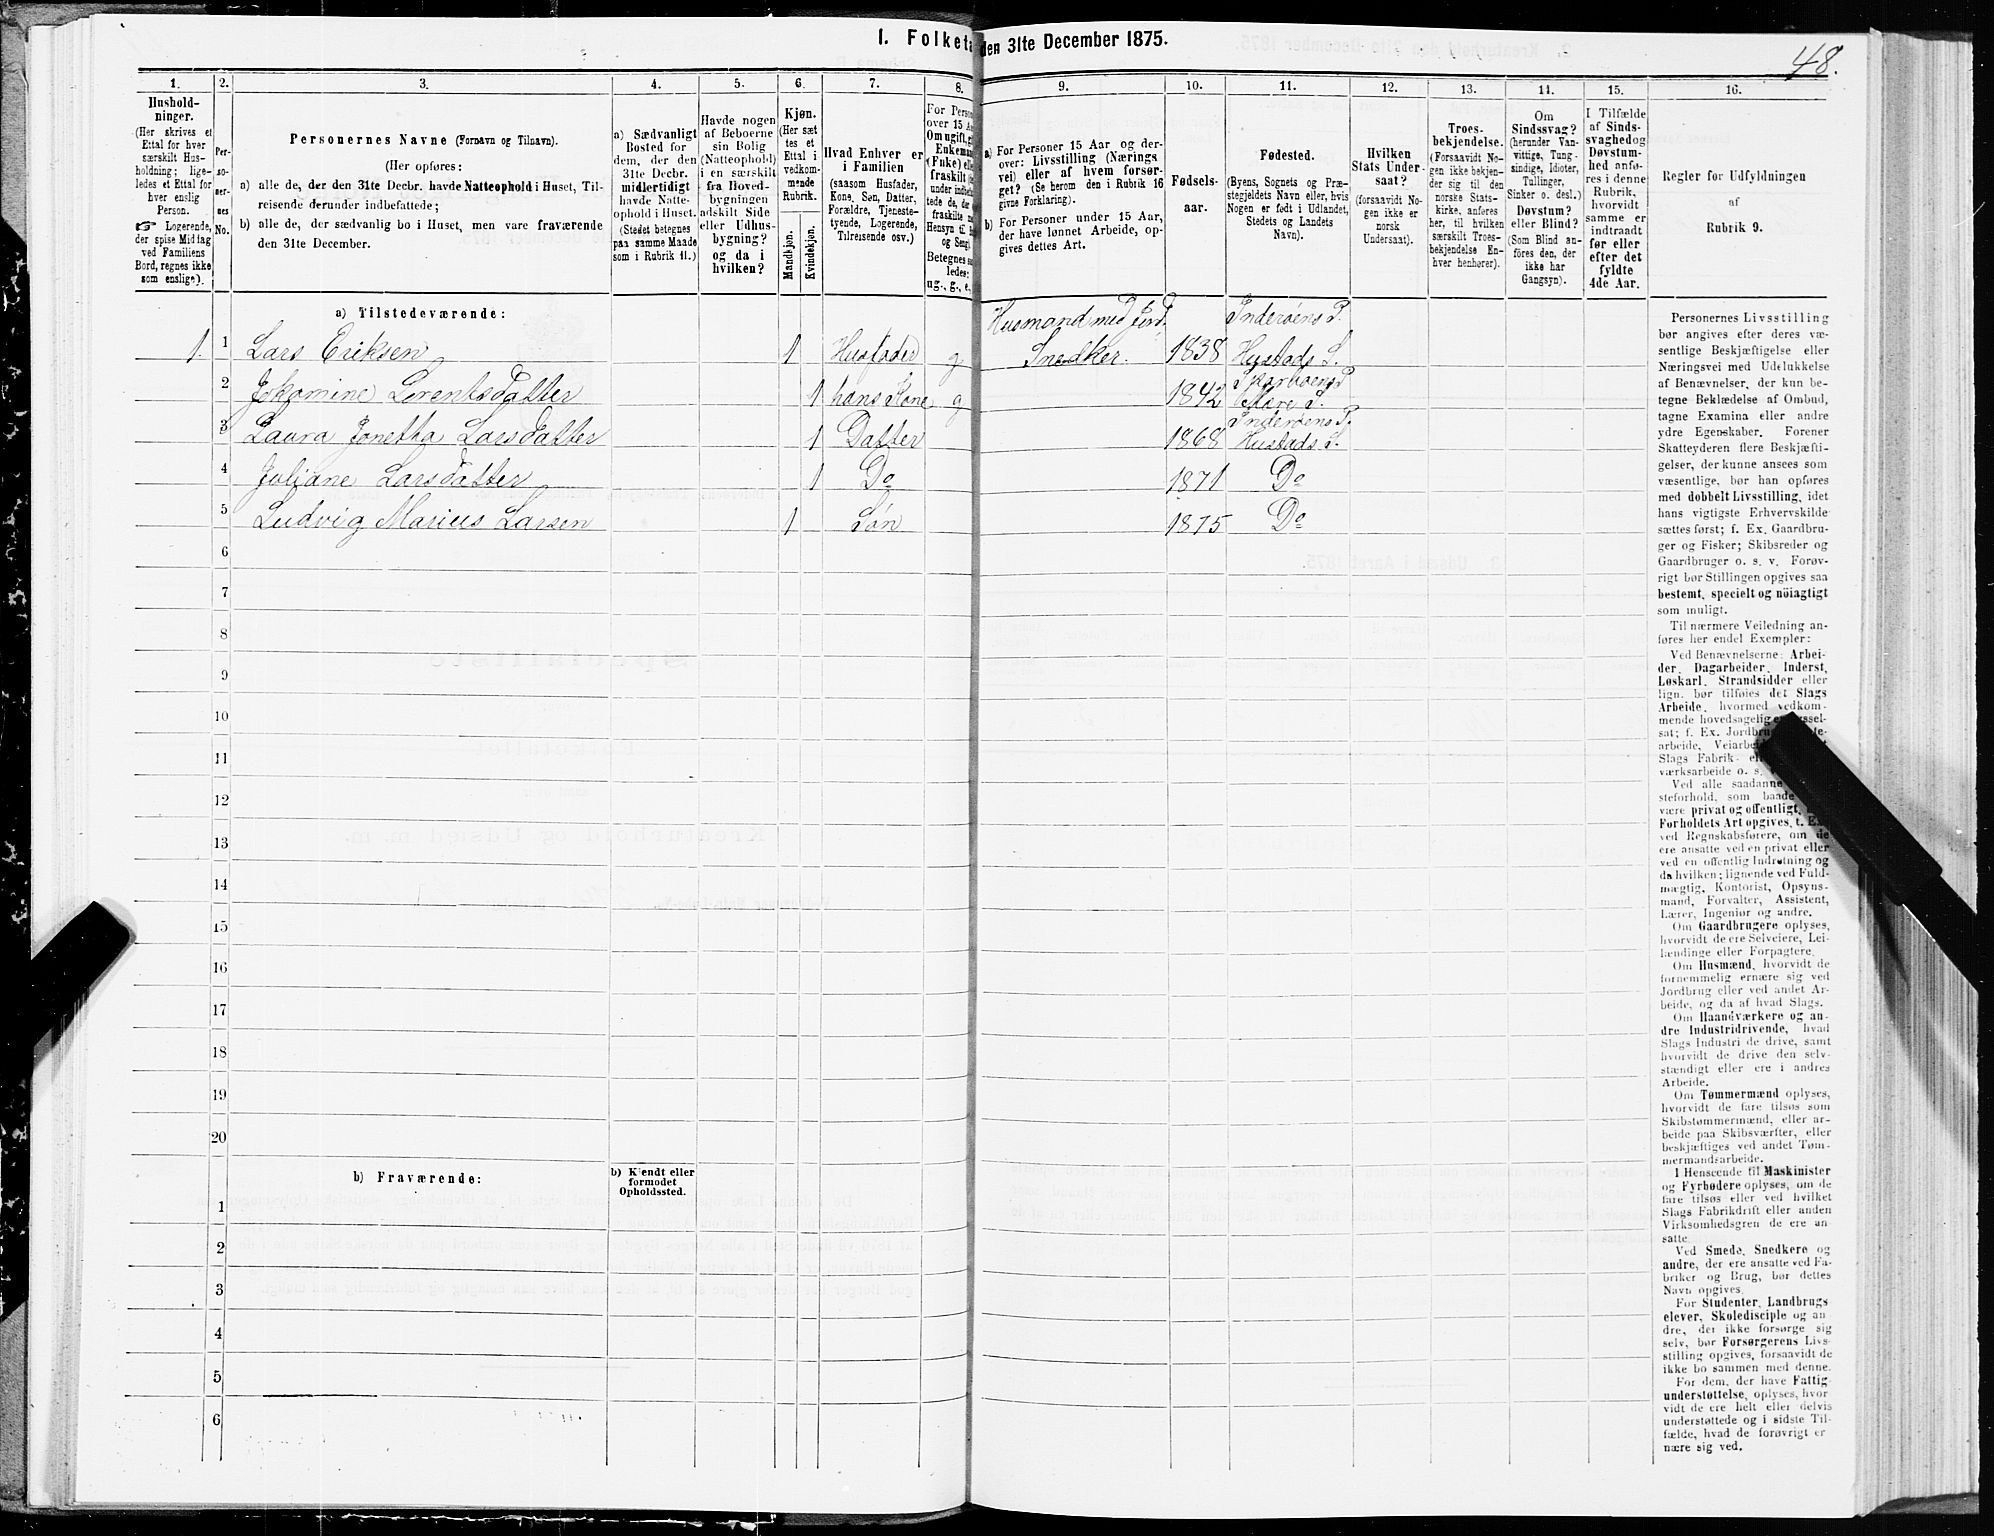 1. Folketa den 31te December 1875.
48.
1. 2. 3. 4. 5. 6. 7. 8. 9. 10. 11. 12. 13. 14. 15. 16.
Hushold-
ninger.
(Her skrives et
Ettal for hver
særskilt Hus-
holdning; lige-
ledes et Ettal for
hver enslig
Person.
Logerende,
der spise Middag
ved Familiens
Bord, regnes ikke
som enslige).
Per-
so-
ner-
nes
No.
Personernes Navne (Fornavn og Tilnavn).
(Her opføres:
a) alle de, der den 31te Decbr. havde Natteophold i Huset, Til-
reisende derunder indbefattede;
b) alle de, der sædvanlig bo i Huset, men vare fraværende
den 31te December.
a) Sædvanligt
Bosted for
dem, der den
31te Decbr.
midlertidigt
havde Natte-
ophold i Huset.
(Stedet betegnes
paa samme Maade
som i Rubrik 11.)
Havde nogen
af Beboerne
sin Bolig
(Natteophold)
i en særskilt
fra Hoved-
bygningen
adskilt Side
eller Udhus-
bygning?
og da i
hvilken?
Kjøn.
(Her sæt
tes et
Ettal i
vedkom-
mende
Rubrik.
Mandkjøn.
Kvindekjøn.
Hvad Enhver er
i Familien
(saasom Husfader,
Kone, Søn, Datter,
Forældre, Tjeneste-
tyende, Logerende,
Tilreisende osv.)
For Perso
over 15 A
Om ugift, g
Enkema
(Enke) ell
fraskilt
under indbe
tede de, der
fraskilte
Hensyn til B
og Seng).
Betegnes sa
ledes:
ug., g., e.,
a) For Personer 15 Aar og der-
over: Livsstilling (Nærings
vei) eller af hvem forsør-
get? (Se herom den i Rubrik 16
givne Forklaring).
b) For Personer under 15 Aar,
der have lønnet Arbeide, op-
gives dettes Art.
Fødsels-
aar.
Fødested.
(Byens, Sognets og Præ-
stegjeldets Navn eller, hvis
Nogen er født i Udlandet,
Stedets og Landets
Navn).
Hvilken
Stats Under-
saat?
(forsaavidt No-
gen ikke er
norsk
Undersaat).
Troes-
bekjendelse.
(Forsaavidt No-
gen ikke bekjen-
der sig til den
norske Stats-
kirke, anføres
her, til hvilken
særskilt Troes-
bekjendelse En-
hver henhører).
Om
Sindssvag?
(herunder Van-
vittige, Tung-
sindige, Idioter,
Tullinger,
Sinker o. desl.).
Døvstum?
eller Blind?
(Som Blind an-
føres den, der
ikke har
Gangsyn).
I Tilfælde
af Sinds-
svaghed og
Døvstum-
hed anfø-
res i denne
Rubrik,
hvorvidt
samme er
indtraadt
før eller
efter det
fyldte
4de Aar.
Regler for Udfyldningen
af
Rubrik 9.
a) Tilstedeværende:
Husmand med Jord. Inderøens P.
1. 1 Lars Eriksen 1 Husfader g Snedker. 1838 Hustads S.
Sparboens P
2 Jekomine Lorentsdatter 1 hans Kone g 1842 Mære S.
Inderøens P.
3 Laura Jonetha Larsdatter 1 Datter 1868 Hustads S.
4 Juliane Larsdatter 1 Do 1871 Do
5 Ludvig Marius Larsen 1 Søn 1875 Do
6
7
8
9
10
11
12
13
14
15
16
17
18
19
20
b) Fraværende:
b) Kjendt eller
formodet
Opholdssted.
1
2
3
4
5
6
Personernes Livsstilling
bør angives efter deres væ-
sentlige Beskjæftigelse eller
Næringsvei med Udelukkelse
af Benævnelser, der kun be-
tegne Beklædelse af Ombud,
tagne Examina eller andre
ydre Egenskaber. Forener
Skatteyderen flere Beskjæfti-
gelser, der kunne ansees som
væsentlige, bør han opføres
med dobbelt Livsstilling, idet
hans vigtigste Erhvervskilde
sættes først; f. Ex. Gaardbru-
ger og Fisker; Skibsreder og
Gaardbruger o. s. v. Forøv-
rigt bør Stillingen opgives saa
bestemt, specielt og nöiagtigt
som muligt.
Til nærmere Veiledning an-
føres her endel Exempler:
Ved Benævnelserne: Arbei-
der, Dagarbeider, Inderst,
Løskarl, Strandsidder eller
lign. bør tilføies det Slags
Arbeide, hvormed vedkom-
mende hovedsagelig er syssel-
sat; f. Ex. Jordbru
arbeide, Veiarbe
Slags Fabrik- el
værksarbeide o. s.
Ved alle saadanne
steforhold, som baade
være privat og offentligt,
Forholdets Art opgives, t. Ex.
ved Regnskabsførere, om de
ere ansatte ved en privat eller
ved en offentlig Indretning og
da hvilken; lignende ved Fuld-
mægtig, Kontorist, Opsyns-
mand, Forvalter, Assistent,
Lærer, Ingeniør og andre.
Om Gaardbrugere oplyses,
hvorvidt de ere Selveiere, Lei-
lændinge eller Forpagtere.
Om Husmænd, hvorvidt de
fornemmelig ernære sig ved
Jordbrug eller ved andet Ar-
beide, og da af hvad Slags.
Om Haandværkere og an-
dre Industridrivende, hvad
Slags Industri de drive, samt
hvorvidt de drive den selv-
stændigt eller ere i andres
Arbeide.
Om Tømmermænd oplyses,
hvorvidt de fare tilsøs som
Skibstømmermænd, eller ar-
beide paa Skibsværfter, eller
beskjæftiges ved andet Tøm-
mermandsarbeide.
I Henseende til Maskinister
og Fyrbødere oplyses, om de
fare tilsøs eller ved hvilket
Slags Fabrikdrift eller anden
Virksomhedsgren de ere an-
satte.
Ved Smede, Snedkere og
andre, der ere ansatte ved Fa-
briker og Brug, bør dettes
Navn opgives.
For Studenter, Landbrugs
elever, Skoledisciple og an
dre, der ikke forsørge sig
selv, bør Forsørgerens Livs-
stilling opgives, forsaavidt de
ikke bo sammen med denne.
For dem, der have Fattig
understøttelse, oplyses, hvor
vidt de ere helt eller delvis
understøttede og i sidste Til-
fælde, hvad de forøvrigt er
nære sig ved.